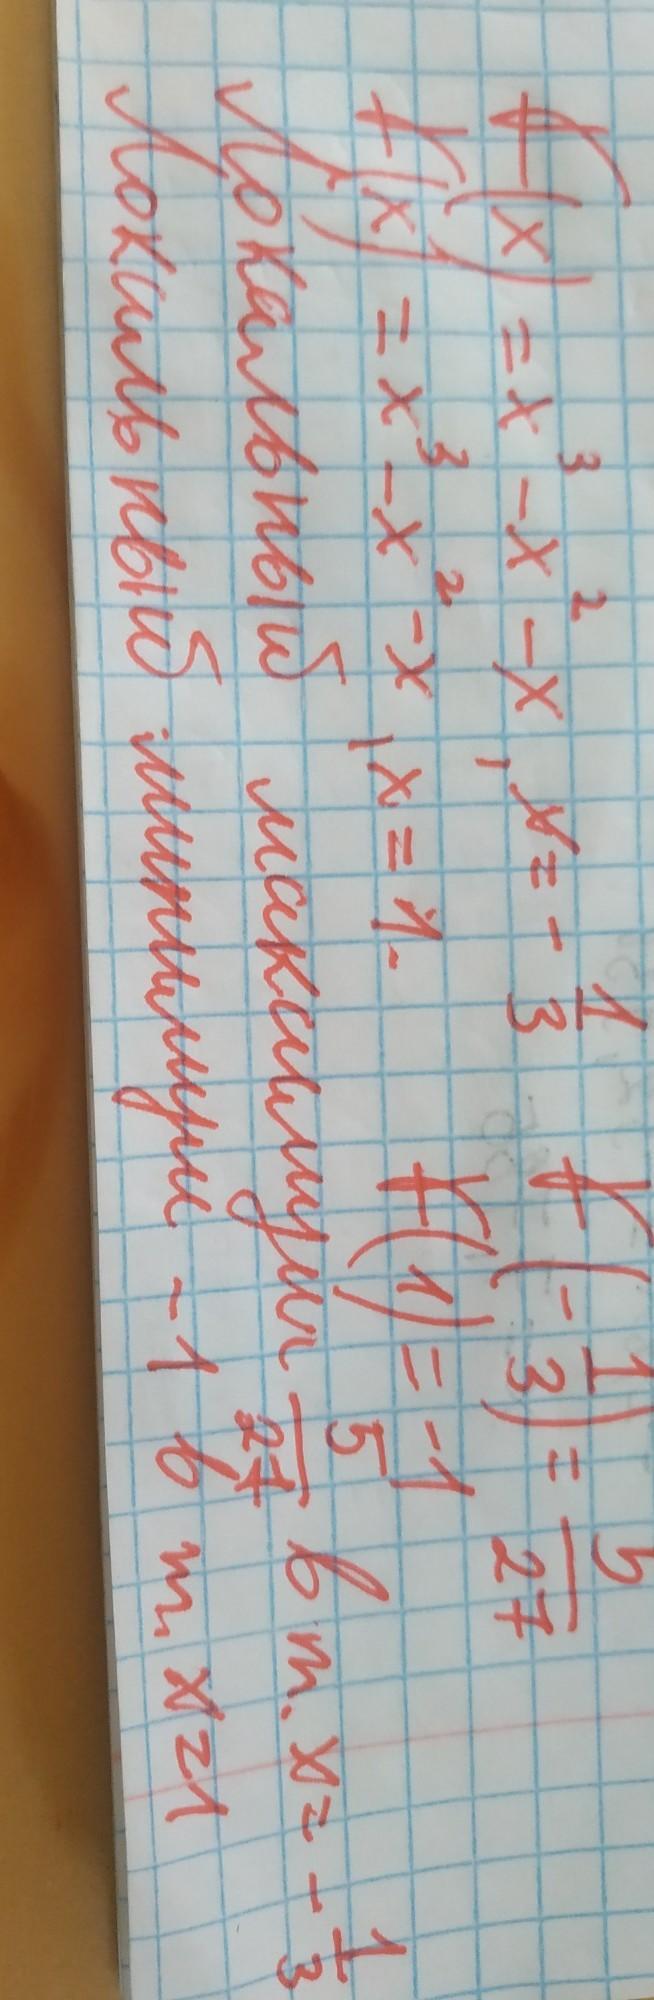 f(x) = x³ - x² - x, x = - 1/3 f(- 1/3) = 5/27
f(x) = x³ - x² - x, x = 1. f(1) = -1
Локальный максимум 5/27 в т. x = - 1/3
Локильный минимум -1 в т. x = 1